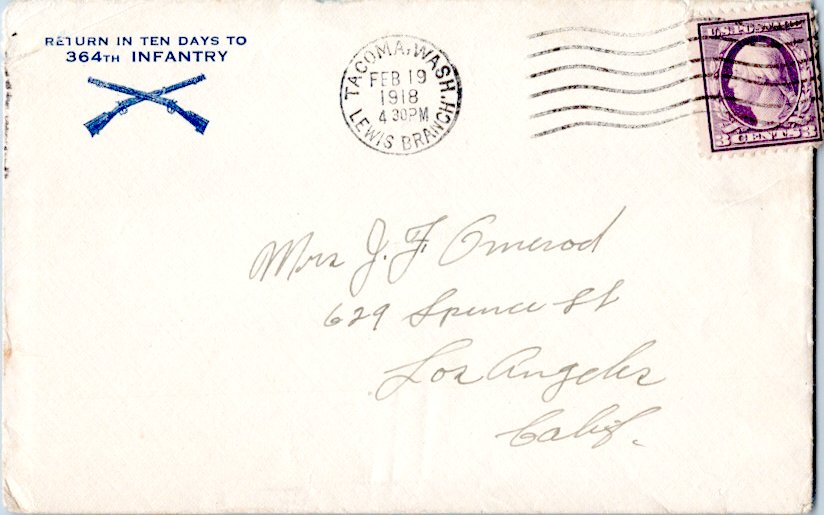 RETURN IN TEN DAYS TO
364TH INFANTRY
TACOMA, WASH.
FEB 19
1918
4 30PM
LEWIS BRANCH
U.S. POSTAGE
3 CENTS 3
Mrs J. F. Omerod
629 Spence St
Los Angeles
Calif.